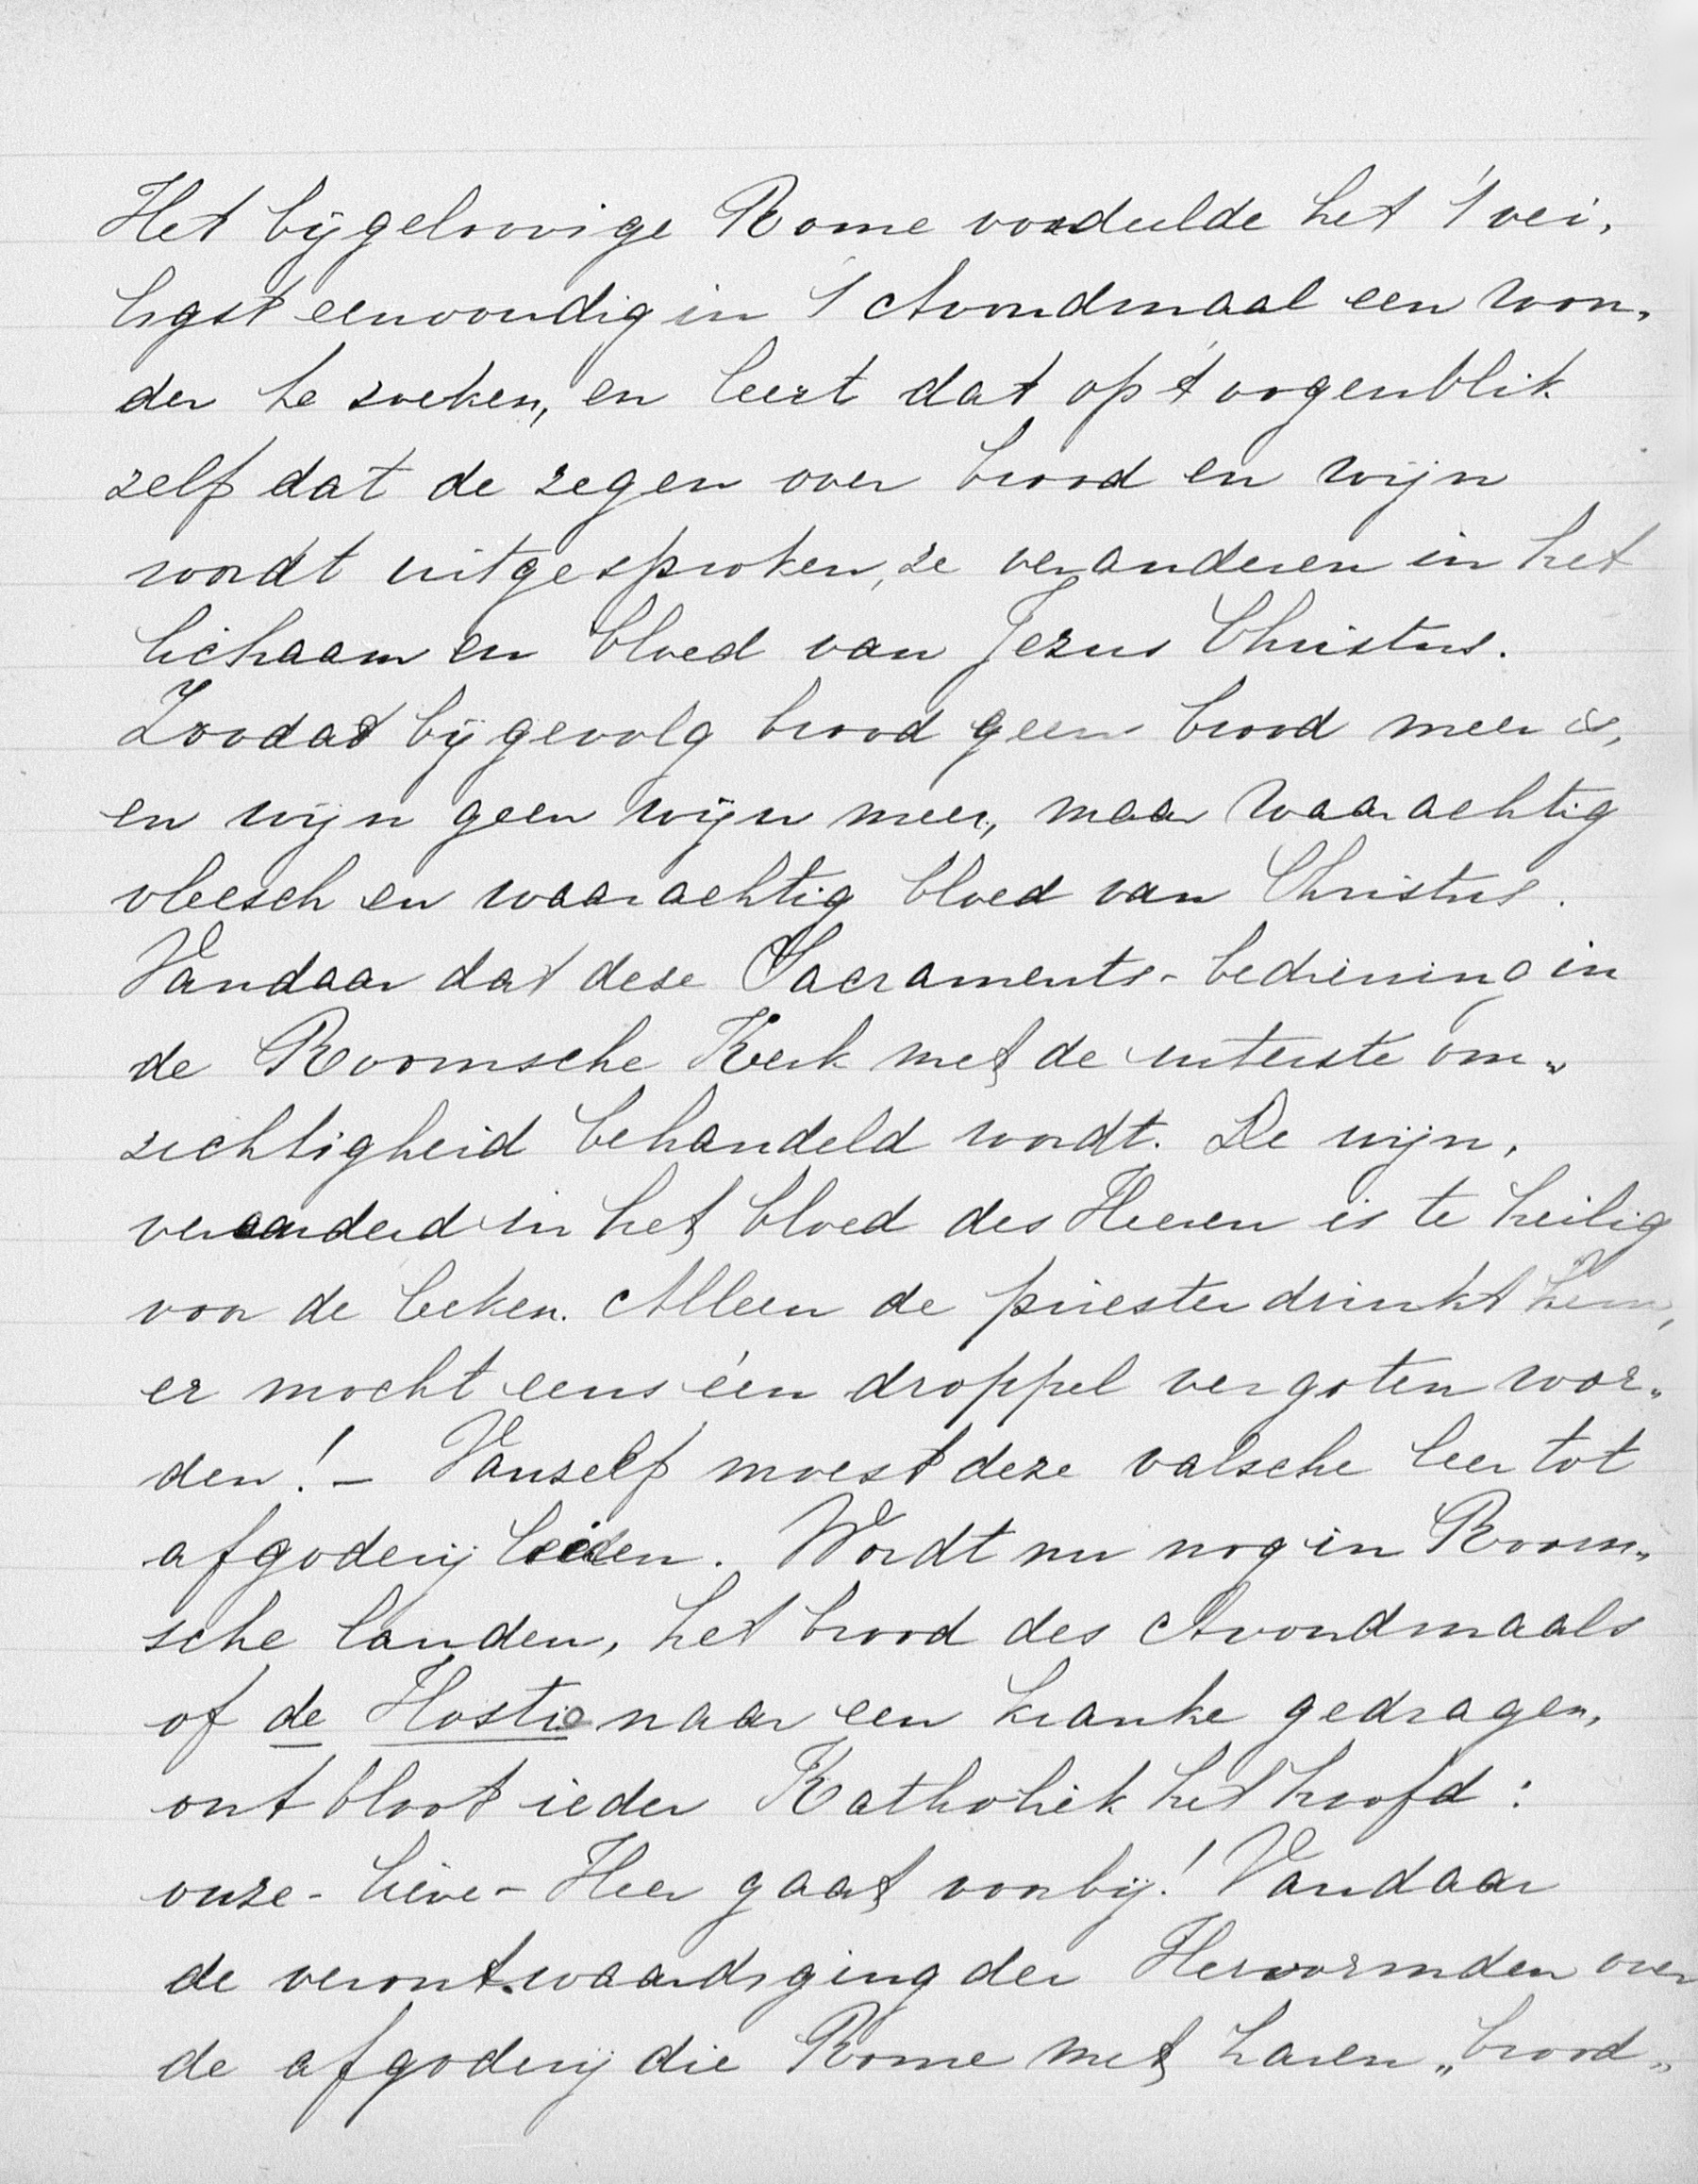 Het bijgeloovige Rome oordeelde het 't vei-
ligst eenvoudig in 't Avondmaal een won-
der te zoeken, en leert dat op 't oogenblik
zelf dat de zegen over brood en wijn
wordt uitgesproken, ze veranderen in het
lichaam en bloed van Jezus Christus.
Zoodat bijgevolg brood geen brood meer is,
en wijn geen wijn meer, maar waarachtig
vleesch en waarachtig bloed van Christus.
Vandaar dat deze Sacraments-bediening in
de Roomsche Kerk met de uiterste om-
zichtigheid behandeld wordt. De wijn,
veranderd in het bloed des Heeren is te heilig
voor de leeken. Alleen de priester drinkt hem,
er mocht eens één droppel vergoten wor-
den! - Vanzelf moest deze valsche leer tot
afgoderij leiden. Wordt nu nog in Room-
sche landen, het brood des Avondmaals
of de Hostie naar een kranke gedragen,
ontbloot ieder Katholiek het hoofd:
onze-lieve-Heer gaat voorbij! Vandaar
de verontwaardiging der Hervormden over
de afgoderij die Rome met haren „brood-